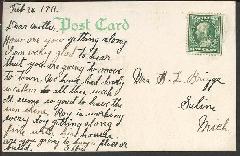 Feb 26 1911.
Post Card
Dear Mother
How are you getting along
I am very glad to hear
that you are going to move
to town. We have had bad
weather to all this week
it seems so good to have the
sun shine. Roy is working
every day getting along
fine with his house
are you going to buy a place or
build.
Mrs H. L. Briggs
Saline
Mich